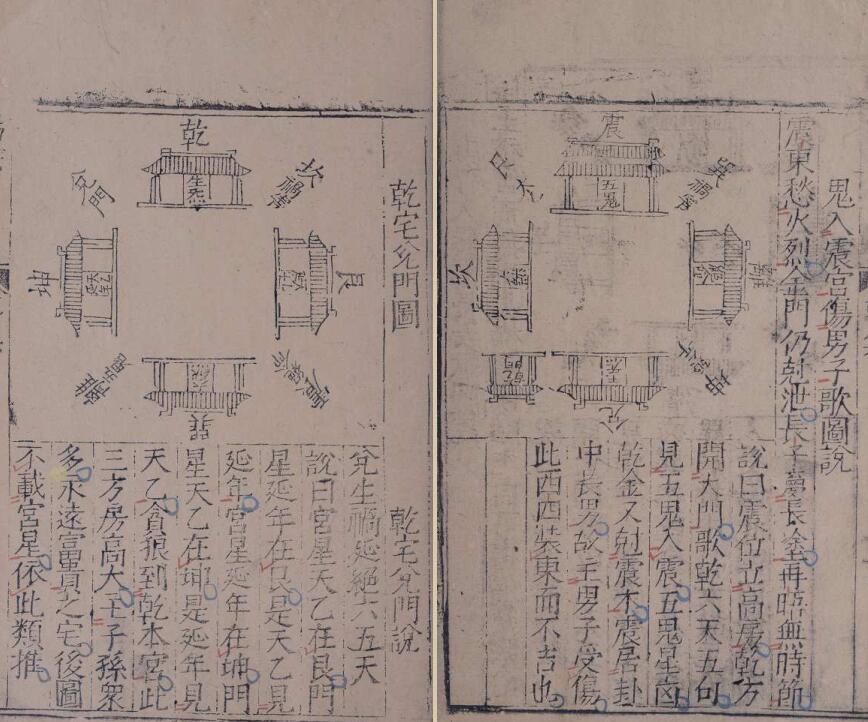 鬼入震宮傷男子歌圖說
震東愁火烈金門仍尅泄長子夢長再臨無時節
震
五鬼
巽禍害
坎
坤
兌
乾門
說曰震位立高房乾方
開大門歌乾六天五句
見五鬼入震五鬼星凶
乾金又尅震木震居卦
中長男故主男子受傷
此西四裝東而不吉也
乾宅兌門圖
乾
生炁
坎禍害
艮
兌門
坤
乾宅兌門說
兌生禍延絕六五天
說曰宮星天乙在艮門
星延年在艮是天乙見
延年宮星延年在坤門
星天乙在坤是延年見
天乙貪狼到乾本宮此
三方房高大主子孫衆
多永遠富貴之宅後圖
不載宮星依此類推